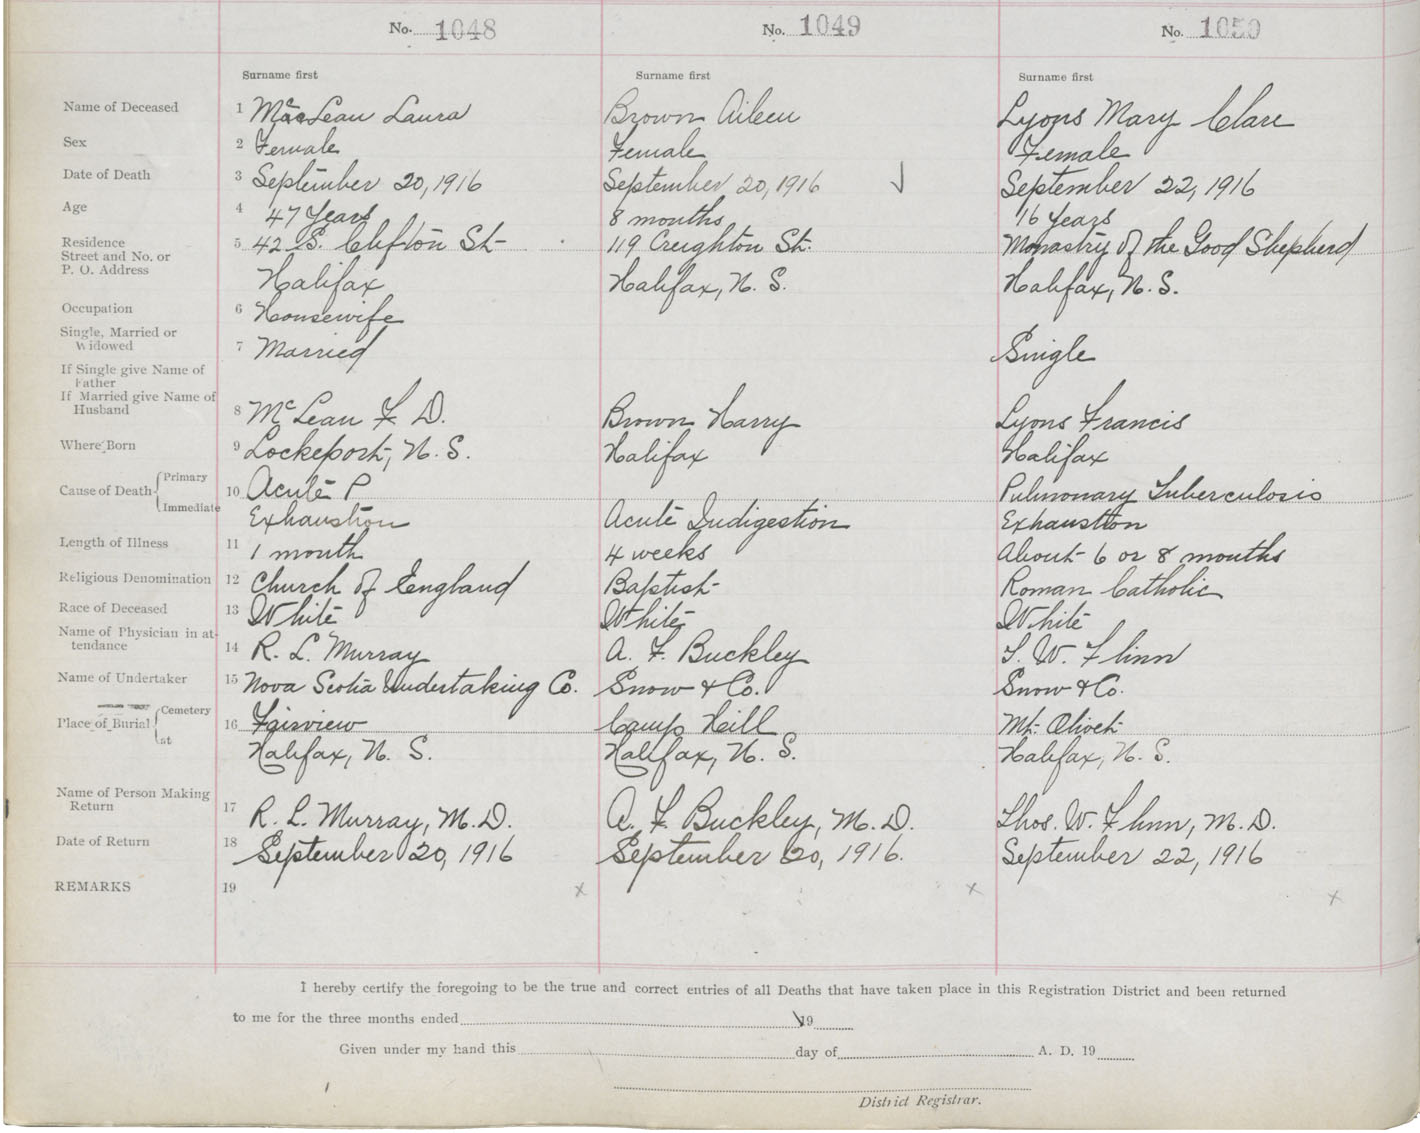 No. 1048 No. 1049 No. 1050
Surname first Surname first Surname first
Name of Deceased 1 McLean Laura Brown Aileen Lyons Mary Clare
Sex 2 Female Female Female
Date of Death 3 September 20, 1916 September 20, 1916 September 22, 1916
Age 4 47 Years 8 months 16 Years
Residence 5 42 S. Clifton St- 119 Creighton St. Monastry of the Good Shepherd
Street and No. or
P. O. Address Halifax Halifax, N. S. Halifax, N. S.
Occupation 6 Housewife
Single, Married or
Widowed 7 Married Single
If Single give Name of
Father
If Married give Name of
Husband 8 McLean F. D. Brown Harry Lyons Francis
Where Born 9 Lockeport, N. S. Halifax Halifax
Cause of Death Primary 10 Acute P Pulmonary Tuberculosis
Immediate Exhaustion Acute Indigestion Exhaustion
Length of Illness 11 1 month 4 weeks About 6 or 8 months
Religious Denomination 12 Church of England Baptist Roman Catholic
Race of Deceased 13 White White White
Name of Physician in at-
tendance 14 R. L. Murray A. F. Buckley T. W. Flinn
Name of Undertaker 15 Nova Scotia Undertaking Co. Snow & Co. Snow & Co.
Place of Burial Cemetery 16 Fairview Camp Hill Mt. Olivet
at Halifax, N. S. Halifax, N. S. Halifax, N. S.
Name of Person Making
Return 17 R. L. Murray, M.D. A. F. Buckley, M.D. Thos. W. Flinn, M.D.
Date of Return 18 September 20, 1916 September 20, 1916. September 22, 1916
REMARKS 19 x x x
I hereby certify the foregoing to be the true and correct entries of all Deaths that have taken place in this Registration District and been returned
to me for the three months ended 19
Given under my hand this day of A. D. 19
District Registrar.